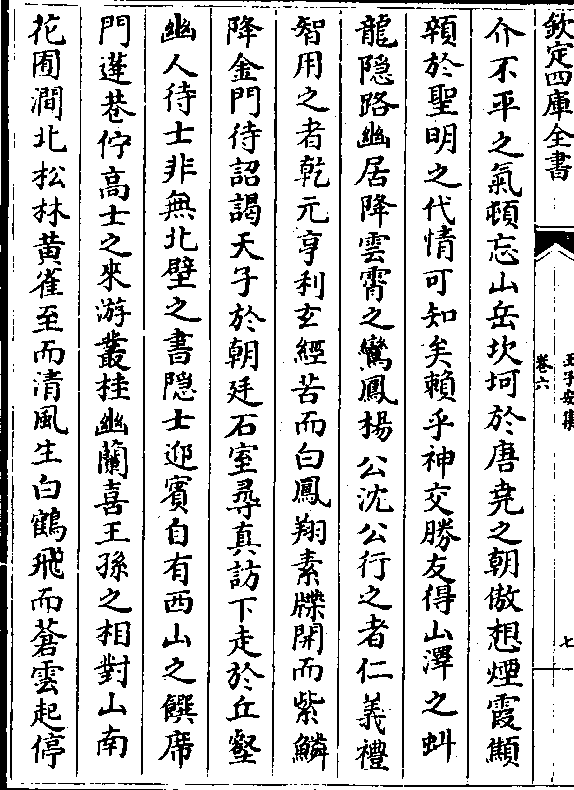 欽定四庫全書
王子安集
卷六
七
介不平之氣頓忘山岳坎坷於唐堯之朝傲想煙霞顦
顇於聖明之代情可知矣賴乎神交勝友得山澤之虯
龍隐路幽居降雲霄之鸞鳳楊公沈公行之者仁義禮
智用之者乾元亨利玄經苦而白鳳翔素牒開而紫鱗
降金門待詔謁天子於朝廷石室尋真訪下走於丘壑
幽人待士非無北壁之書隐士迎賓自有西山之饌席
門蓬巷佇高士之來游叢桂幽蘭喜王孫之相對山南
花圃澗北松林黄雀至而清風生白鶴飛而蒼雲起停